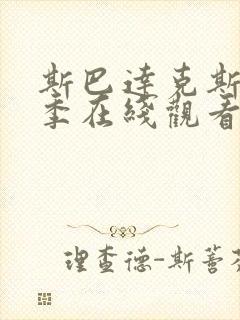 斯巴達克斯
季在綫觀看
理查德-斯蒈芬